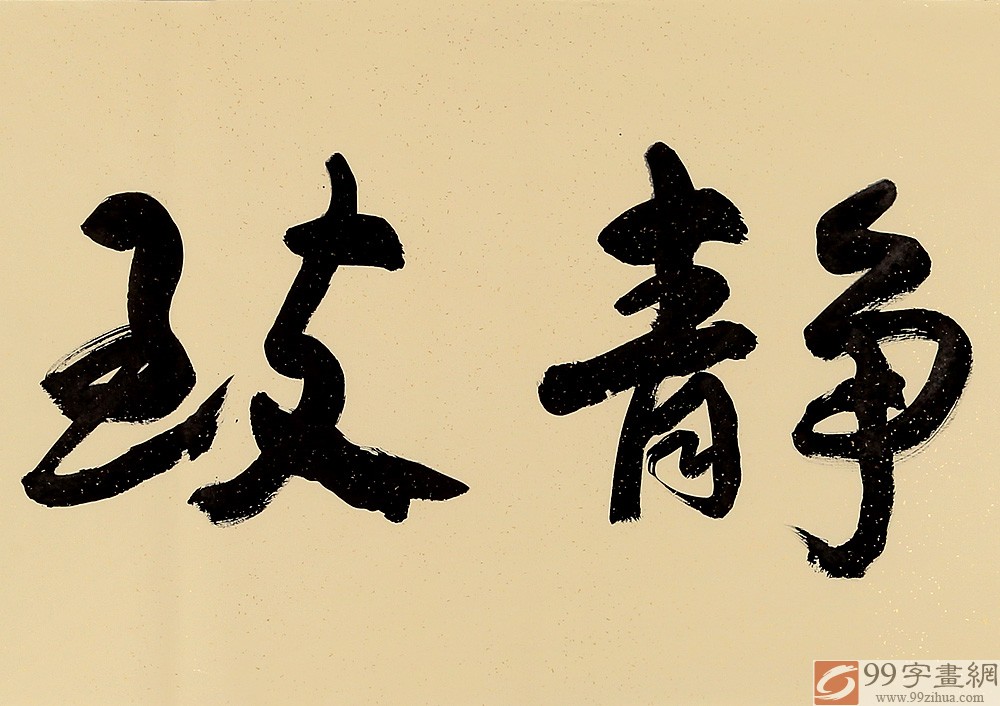 静致
99字畫網
www.99zihua.com